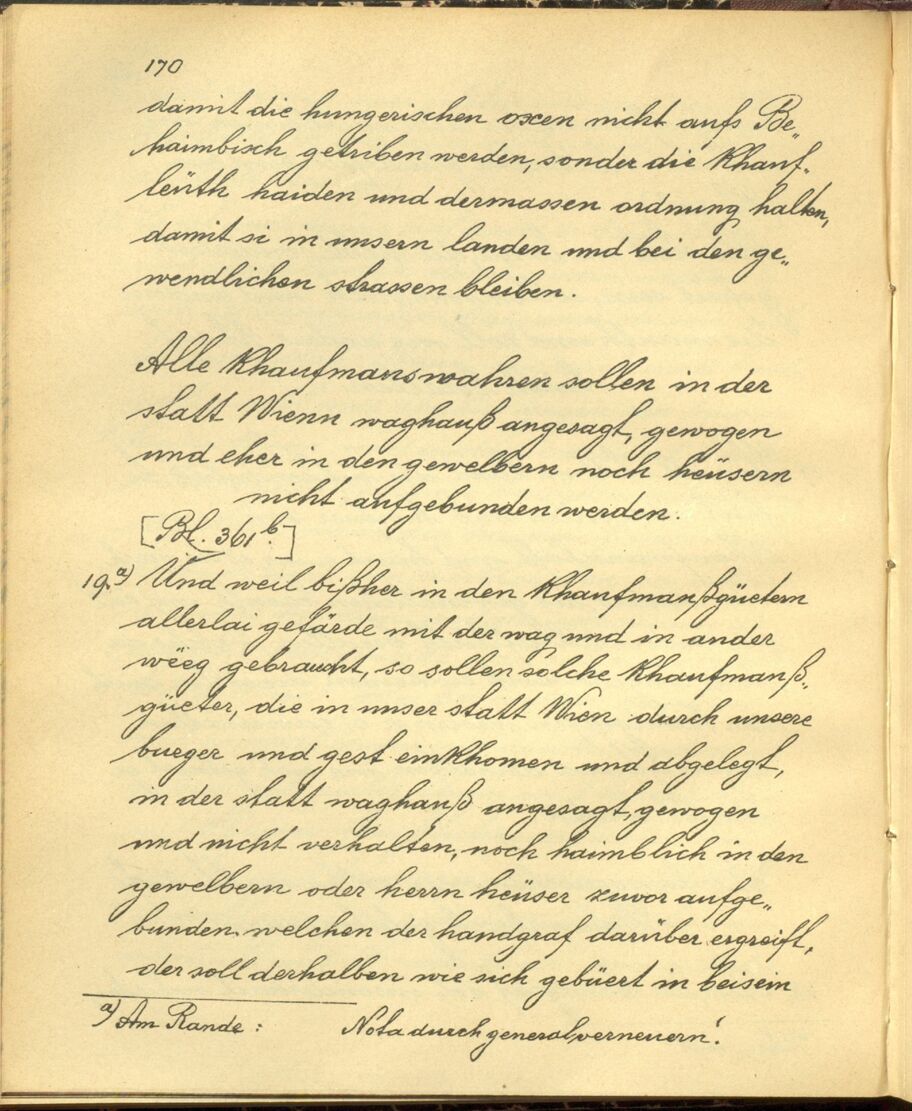 170
damit die hungerischen oxen nicht aufs Be„
haimbisch getriben werden, sonder die Khauf„
leüth haiden und dermassen ordnung halten,
damit si in unsern landen und bei den ge„
wendlichen strassen bleiben.
Alle Khaufmanswahren sollen in der
statt Wienn waghauß angesagt, gewogen
und eher in den gewelbern noch heüsern
nicht aufgebunden werden.
[Bl. 361 b.]
19.a) Und weil bißher in den Khaufmanßgüetern
allerlai gefärde mit der wag und in ander
wëeg gebraucht, so sollen solche Khaufmanß„
güeter, die in unser statt Wien durch unsere
burger und gest einkhomen und abgelegt,
in der statt waghauß angesagt, gewogen
und nicht verhalten, noch haimblich in den
gewelbern oder herrn heüser zuvor aufge„
bunden. welchen der handgraf darüber ergreift,
der soll derhalben wie sich gebüert in beisein
a) Am Rande : Nota durch general verneuern!